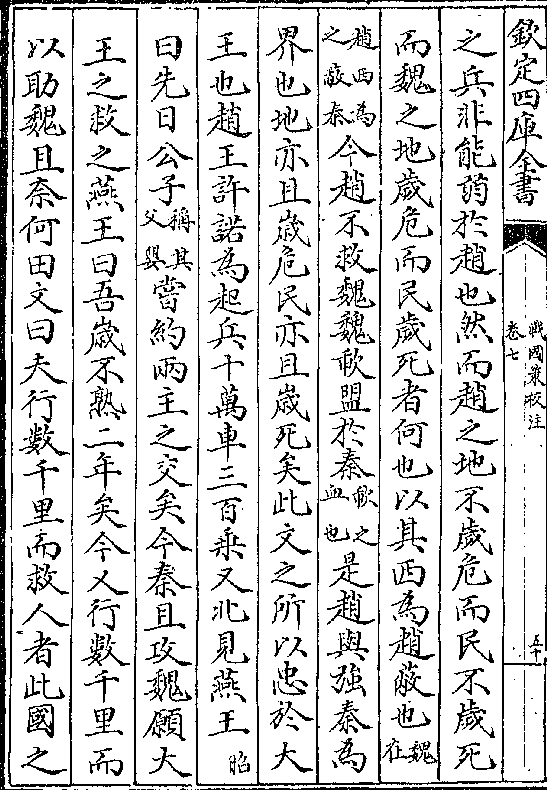 欽定四庫全書
戰國策校注
卷七
五十
之兵非能弱於趙也然而趙之地不歲危而民不歲死
而魏之地歲危而民歲死者何也以其西為趙蔽也魏在
趙西為之蔽秦今趙不救魏魏歃盟於秦歃之血也是趙與強秦為
界也地亦且歲危民亦且歲死矣此文之所以忠於大
王也趙王許諾為起兵十萬車三百乗又北見燕王昭
曰先日公子稱其父嬰嘗約兩主之交矣今秦且攻魏願大
王之救之燕王曰吾歲不熟二年矣今又行數千里而
以助魏且奈何田文曰夫行數千里而救人者此國之